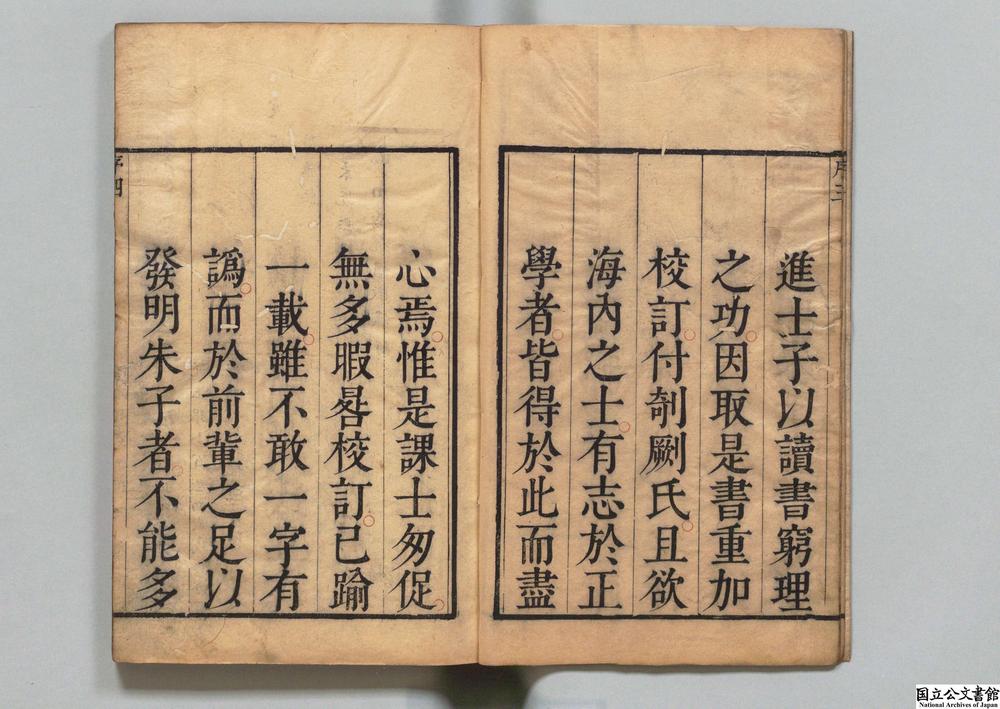 序三
進士子以讀書窮理
之功因取是書重加
校訂付剞劂氏且欲
海內之士有志於正
學者皆得於此而盡
心焉惟是課士匆促
無多暇晷校訂已踰
一載雖不敢一字有
譌而於前輩之足以
發明朱子者不能多
序四
国立公文書館
National Archives of Japan